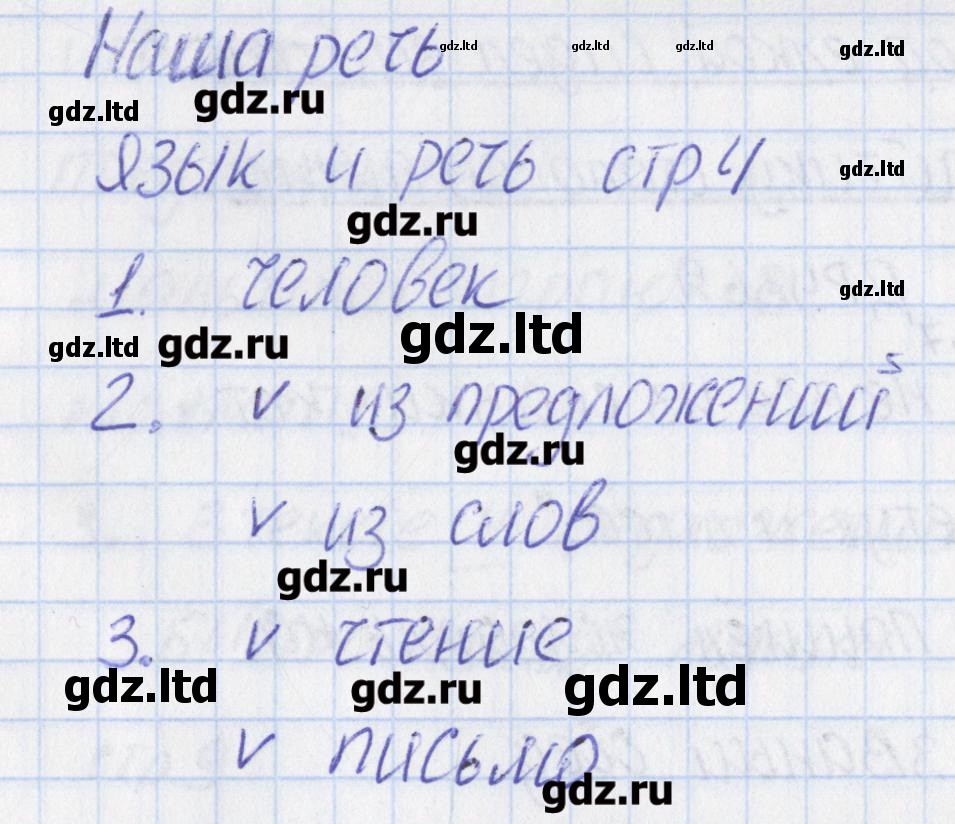 Наша речь
gdz.ltd gdz.ltd gdz.ltd gdz.ltd
gdz.ltd gdz.ru
Язык и речь стр 4
gdz.ltd
gdz.ru
1. человек
gdz.ltd
gdz.ltd gdz.ru gdz.ltd
2. v из предложений
gdz.ru
v из слов
gdz.ru
3. v чтение
gdz.ltd gdz.ru gdz.ltd
v письмо
gdz.ru